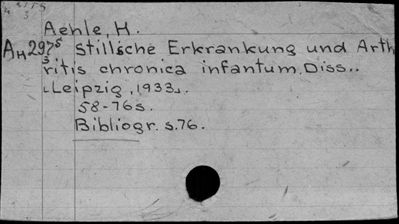 Aehle, H.
AH2975 Stillsche Erkrankung und Arth
3 ritis chronica infantum. Diss..
"Leipzig, 1933".
58-76s.
Bibliogr. s.76.